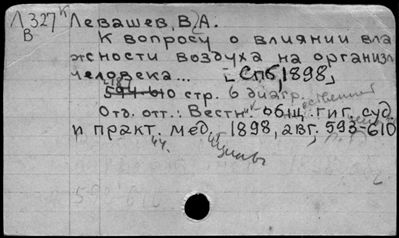 Л327к Левашев, В. А.
В
К вопросу о влиянии вла
жности воздуха на организм
человека... [Спб, 1898]
18
594-610 стр. 6 диагр.
Отд. отт.: Вестн. общ. гиг., суд.
и практ. мед., 1898, авг. 593-610